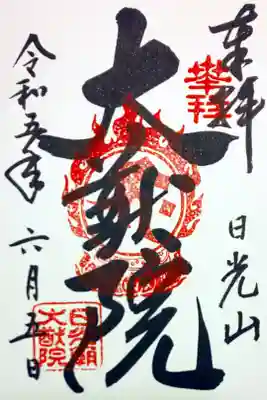 奉拝
日光山
奉拝
大猷院
令和五年 六月五日
日光廟
大猷院